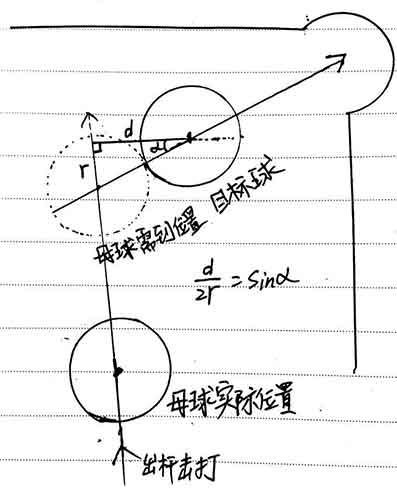 d
r
α
母球需到位置
目标球
d/2r = sinα
母球实际位置
出杆击打